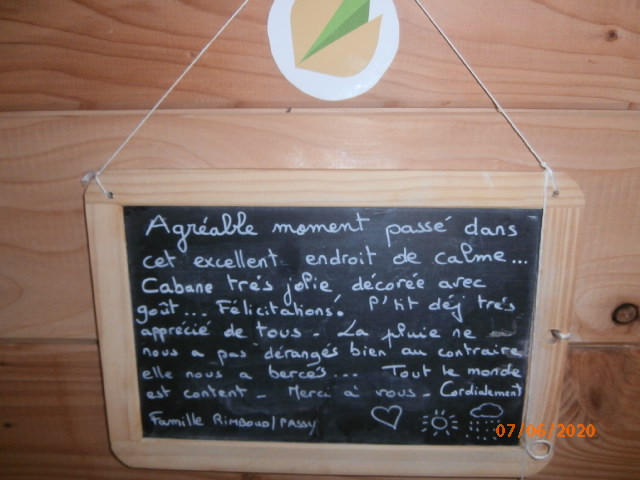 Agréable moment passé dans
cet excellent endroit de calme...
Cabane trés jolie décorée avec
goût... Félicitations! P'tit déj trés
apprécié de tous. La pluie ne
nous a pas dérangés bien au contraire
elle nous a bercés... Tout le monde
est content. Merci à vous. Cordialement
Famille RIMBOUD/PASSY
07/06/2020